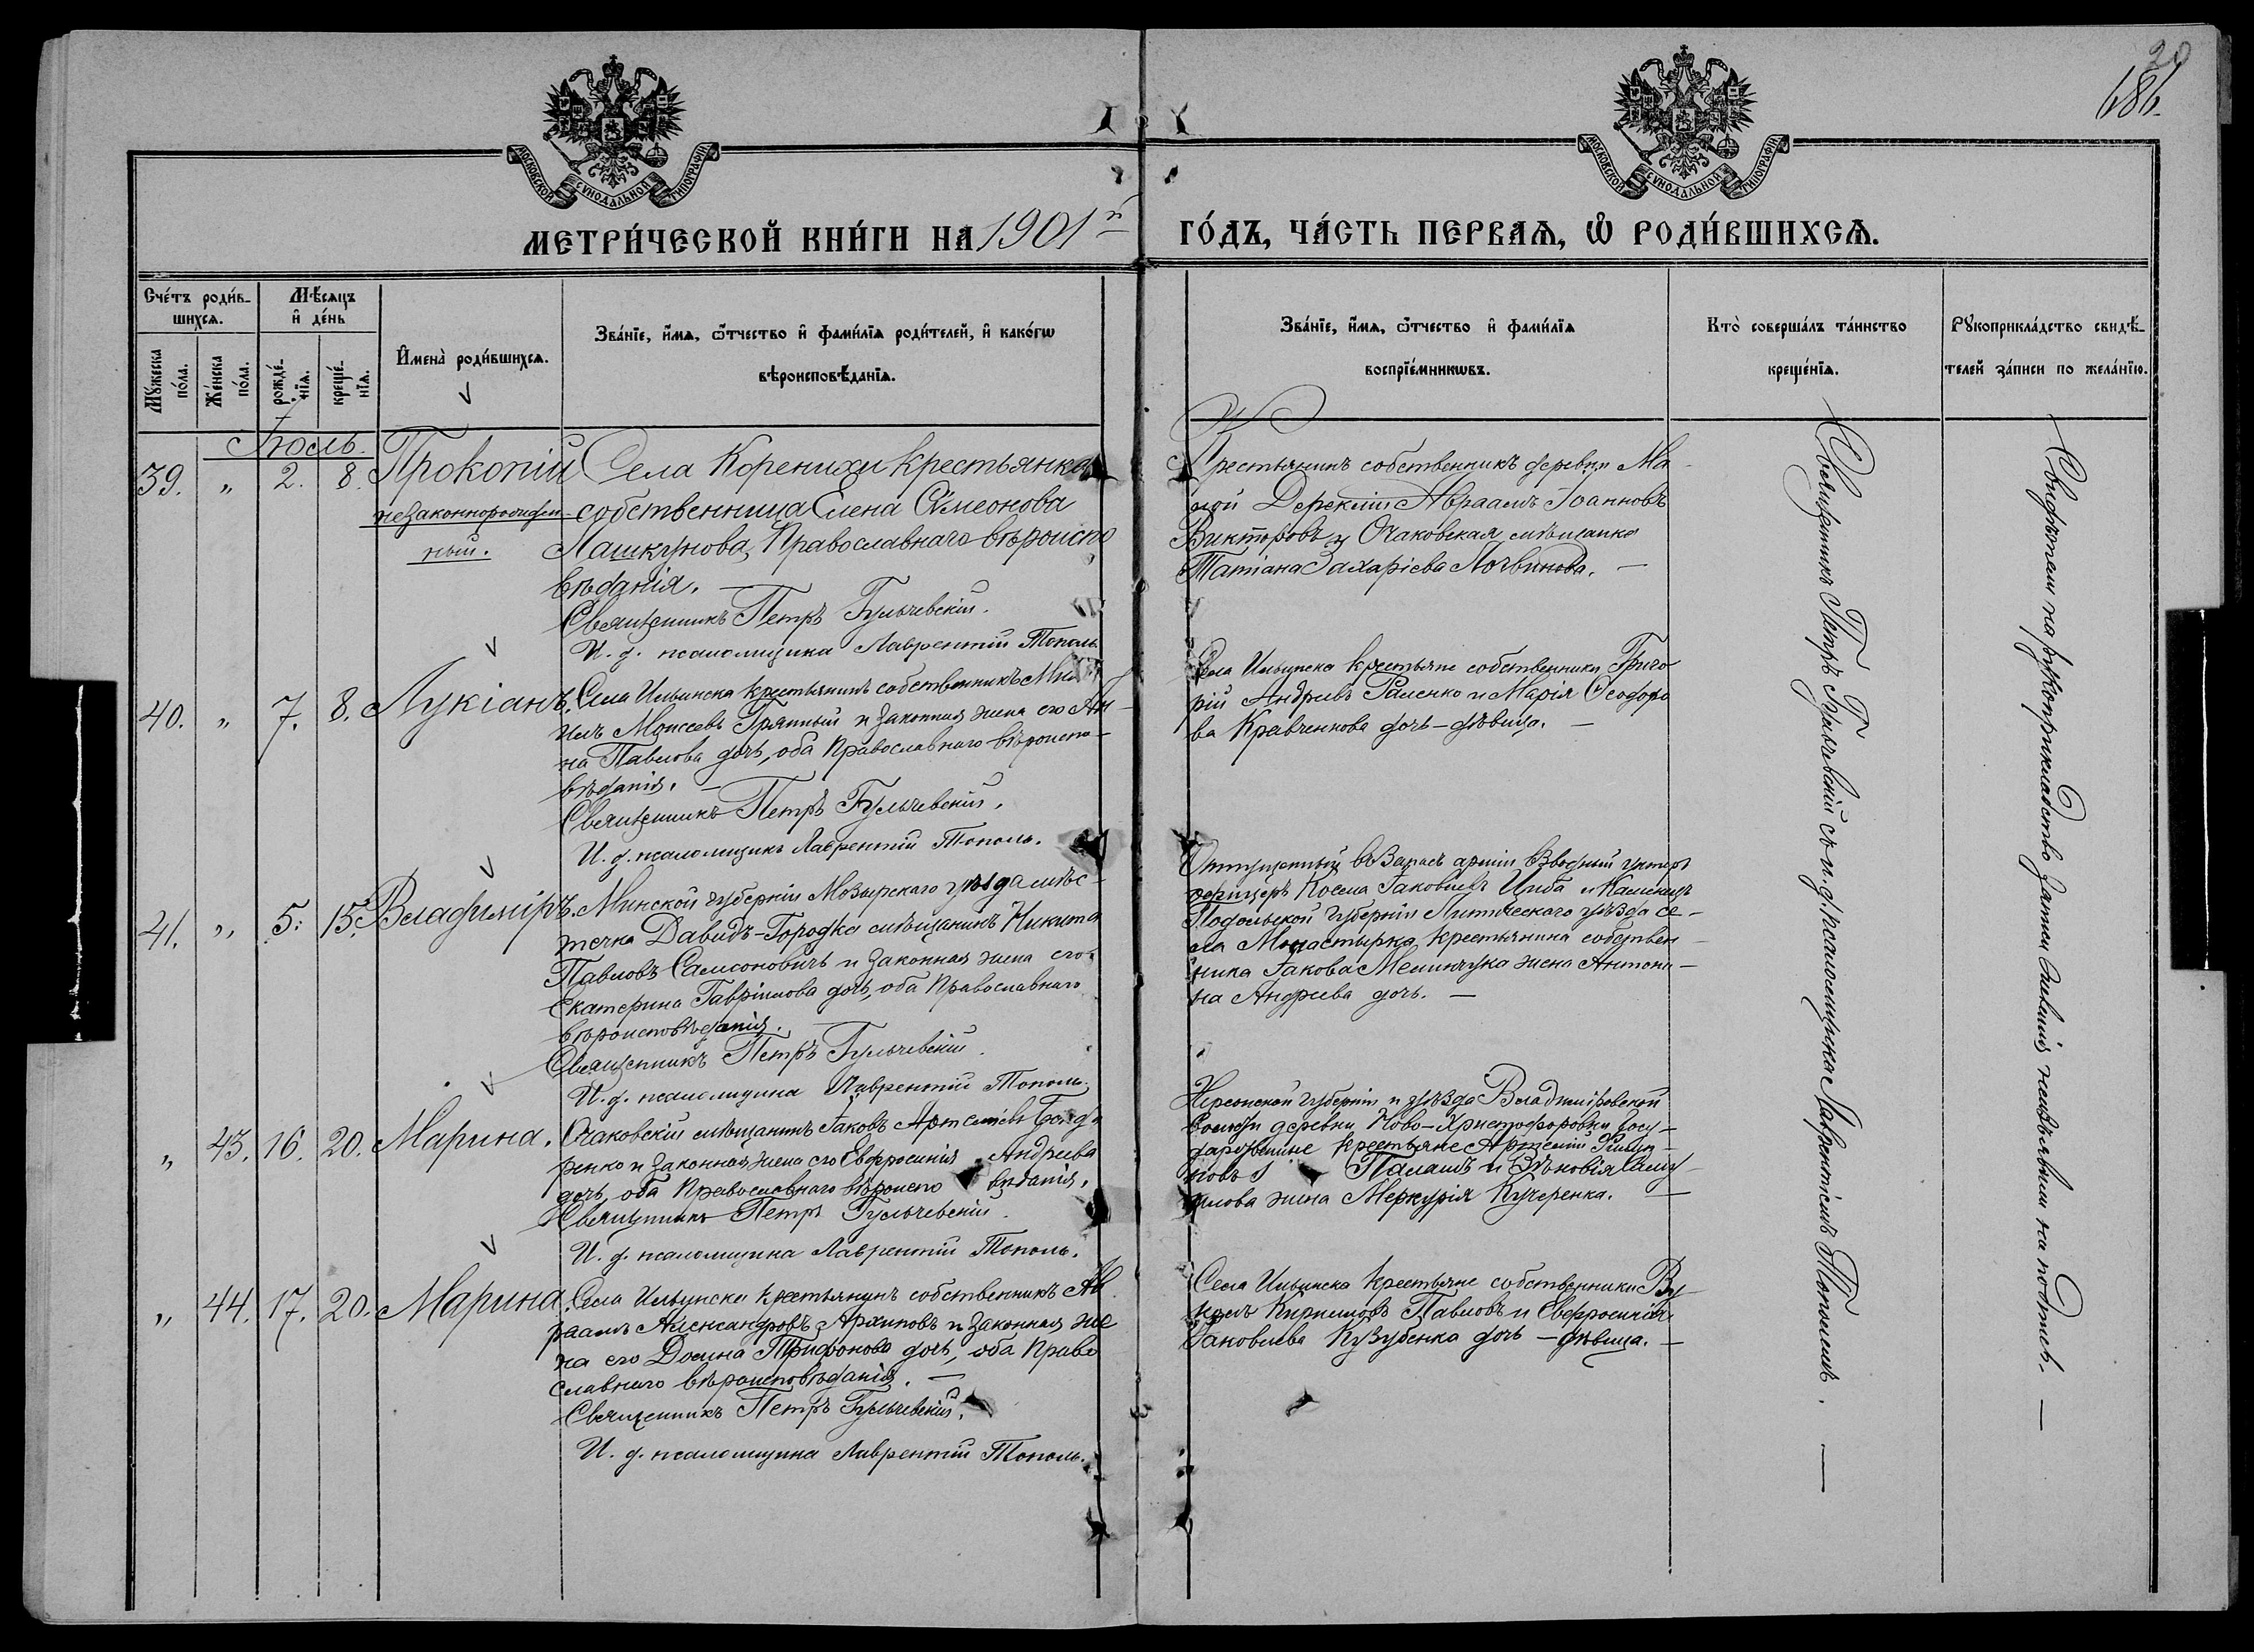 20
186.
МОСКОВСКОЙ СѴНОДАЛЬНОЙ ТИПОГРАФІИ
МОСКОВСКОЙ СѴНОДАЛЬНОЙ ТИПОГРАФІИ
МЕТРИ́ЧЕСКОЙ КНИ́ГИ НА 1901й ГО́ДЪ, ЧА́СТЬ ПЕРВАѦ, Ѽ РОДИ́ВШИХСѦ.
Сче́тъ роди́в-
шихсѧ.
Мꙋжеска
по́ла.
Же́нска
по́ла.
Мѣ́сѧцъ
и҆ де́нь
рожде́-
нїѧ.
креще́-
нїѧ.
И҆мена̀ роди́вшихсѧ.
Зва́нїе, и҆́мѧ, ѻ҆́тчество и҆ фами́лїѧ роди́телей, и҆ како́гѡ
вѣроисповѣ́данїѧ.
Зва́нїе, и҆́мѧ, ѻ҆́тчество и҆ фами́лїѧ
воспрїе́мникѡвъ.
Кто̀ соверша́лъ та́инство
креще́нїѧ.
Рꙋкоприкла́дство свидѣ́-
телей за́писи по жела́нїю.
Іюль.
39. „ 2. 8. Прокопій
незаконнорожден-
ный.
Села Коренихи крестьянка
собственница Елена Сѵмеонова
Лашкунова, Православнаго вѣроиспо
вѣданія. —
Священникъ Петръ Гульчевскій.
И. д. псаломщика Лаврентій Тополь.
Крестьянинъ собственникъ деревни Ма-
лой Дереклии Авраамъ Іоанновъ
Викторовъ и Очаковская мѣщанка
Татіана Захаріева Логвинова. —
40. „ 7. 8. Лукіанъ.
Села Ильинска крестьянинъ собственникъ Ми
илъ Моисеевъ Грянный и законная жена его Ан-
на Павлова дочь, оба Православнаго вѣроиспо-
вѣданія. —
Священникъ Петръ Гульчевскій.
И. д. псаломщика Лаврентій Тополь.
Села Ильинска крестьяне собственники Григо
рій Андреевъ Раленко и Марія Ѳеодоро
ва Кравченкова дочь - дѣвица. —
41. „ 5. 15. Владиміръ.
Минской губерніи Мозырскаго уѣзда мѣс-
течка Давидъ-Городка мѣщанинъ Никита
Павловъ Самсоновичъ и законная жена его
Екатерина Гавріилова дочь, оба Православнаго
вѣроисповѣданія. —
Священникъ Петръ Гульчевскій.
И. д. псаломщика Лаврентій Тополь.
Отпущенный въ Запасъ арміи Взводный унтеръ
офицеръ Косма Іаковлевъ Циба и
Подольской губерніи Литинскаго уѣзда се-
ла Монастырка крестьянина собствен-
ника Іакова Мельничука жена Антони-
на Андреева дочь. —
„ 43. 16. 20. Марина.
Очаковскій мѣщанинъ Іаковъ Артеміевъ Бонда
ренко и законная жена его Евфросинія Андреева
дочь, оба Православнаго вѣроиспо вѣданія.
Священникъ Петръ Гульчевскій.
И. д. псаломщика Лаврентій Тополь.
Херсонской губерніи и уѣзда Владиміровской
волости деревни Ново-Христофоровки Госу-
дарственные крестьяне Артемій Филип-
повъ Паламъ и Зѣновія Саму-
илова жена Меркурія Кучеренка. —
„ 44. 17. 20. Марина.
Села Ильинска крестьянинъ собственникъ Ав
раамъ Александровъ Архиповъ и законная же
на его Домна Трифонова дочь, оба Право
славнаго вѣроисповѣданія. —
Священникъ Петръ Гульчевскій.
И. д. псаломщика Лаврентій Тополь.
Села Ильинска крестьяне собственники Ву
колъ Кирилловъ Павловъ и Евфросинія
Іаковлева Кузубенка дочь - дѣвица. —
Священникъ Петръ Гульчевскій съ и. д. псаломщика Лаврентіемъ Тополемъ. —
Свидѣтели на рукоприкладство записи сивышія неявлявыми на подпись. —